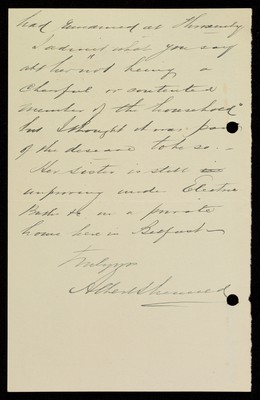 had remained at
I admit what you say
abt her "not being a
cheerful or contented
member of the household"
but I thought it was part
of the disease to be so. –
Her sister is still
improving under Electric
Baths &c in a private
home here in Belfast –
Truly yrs
Albert